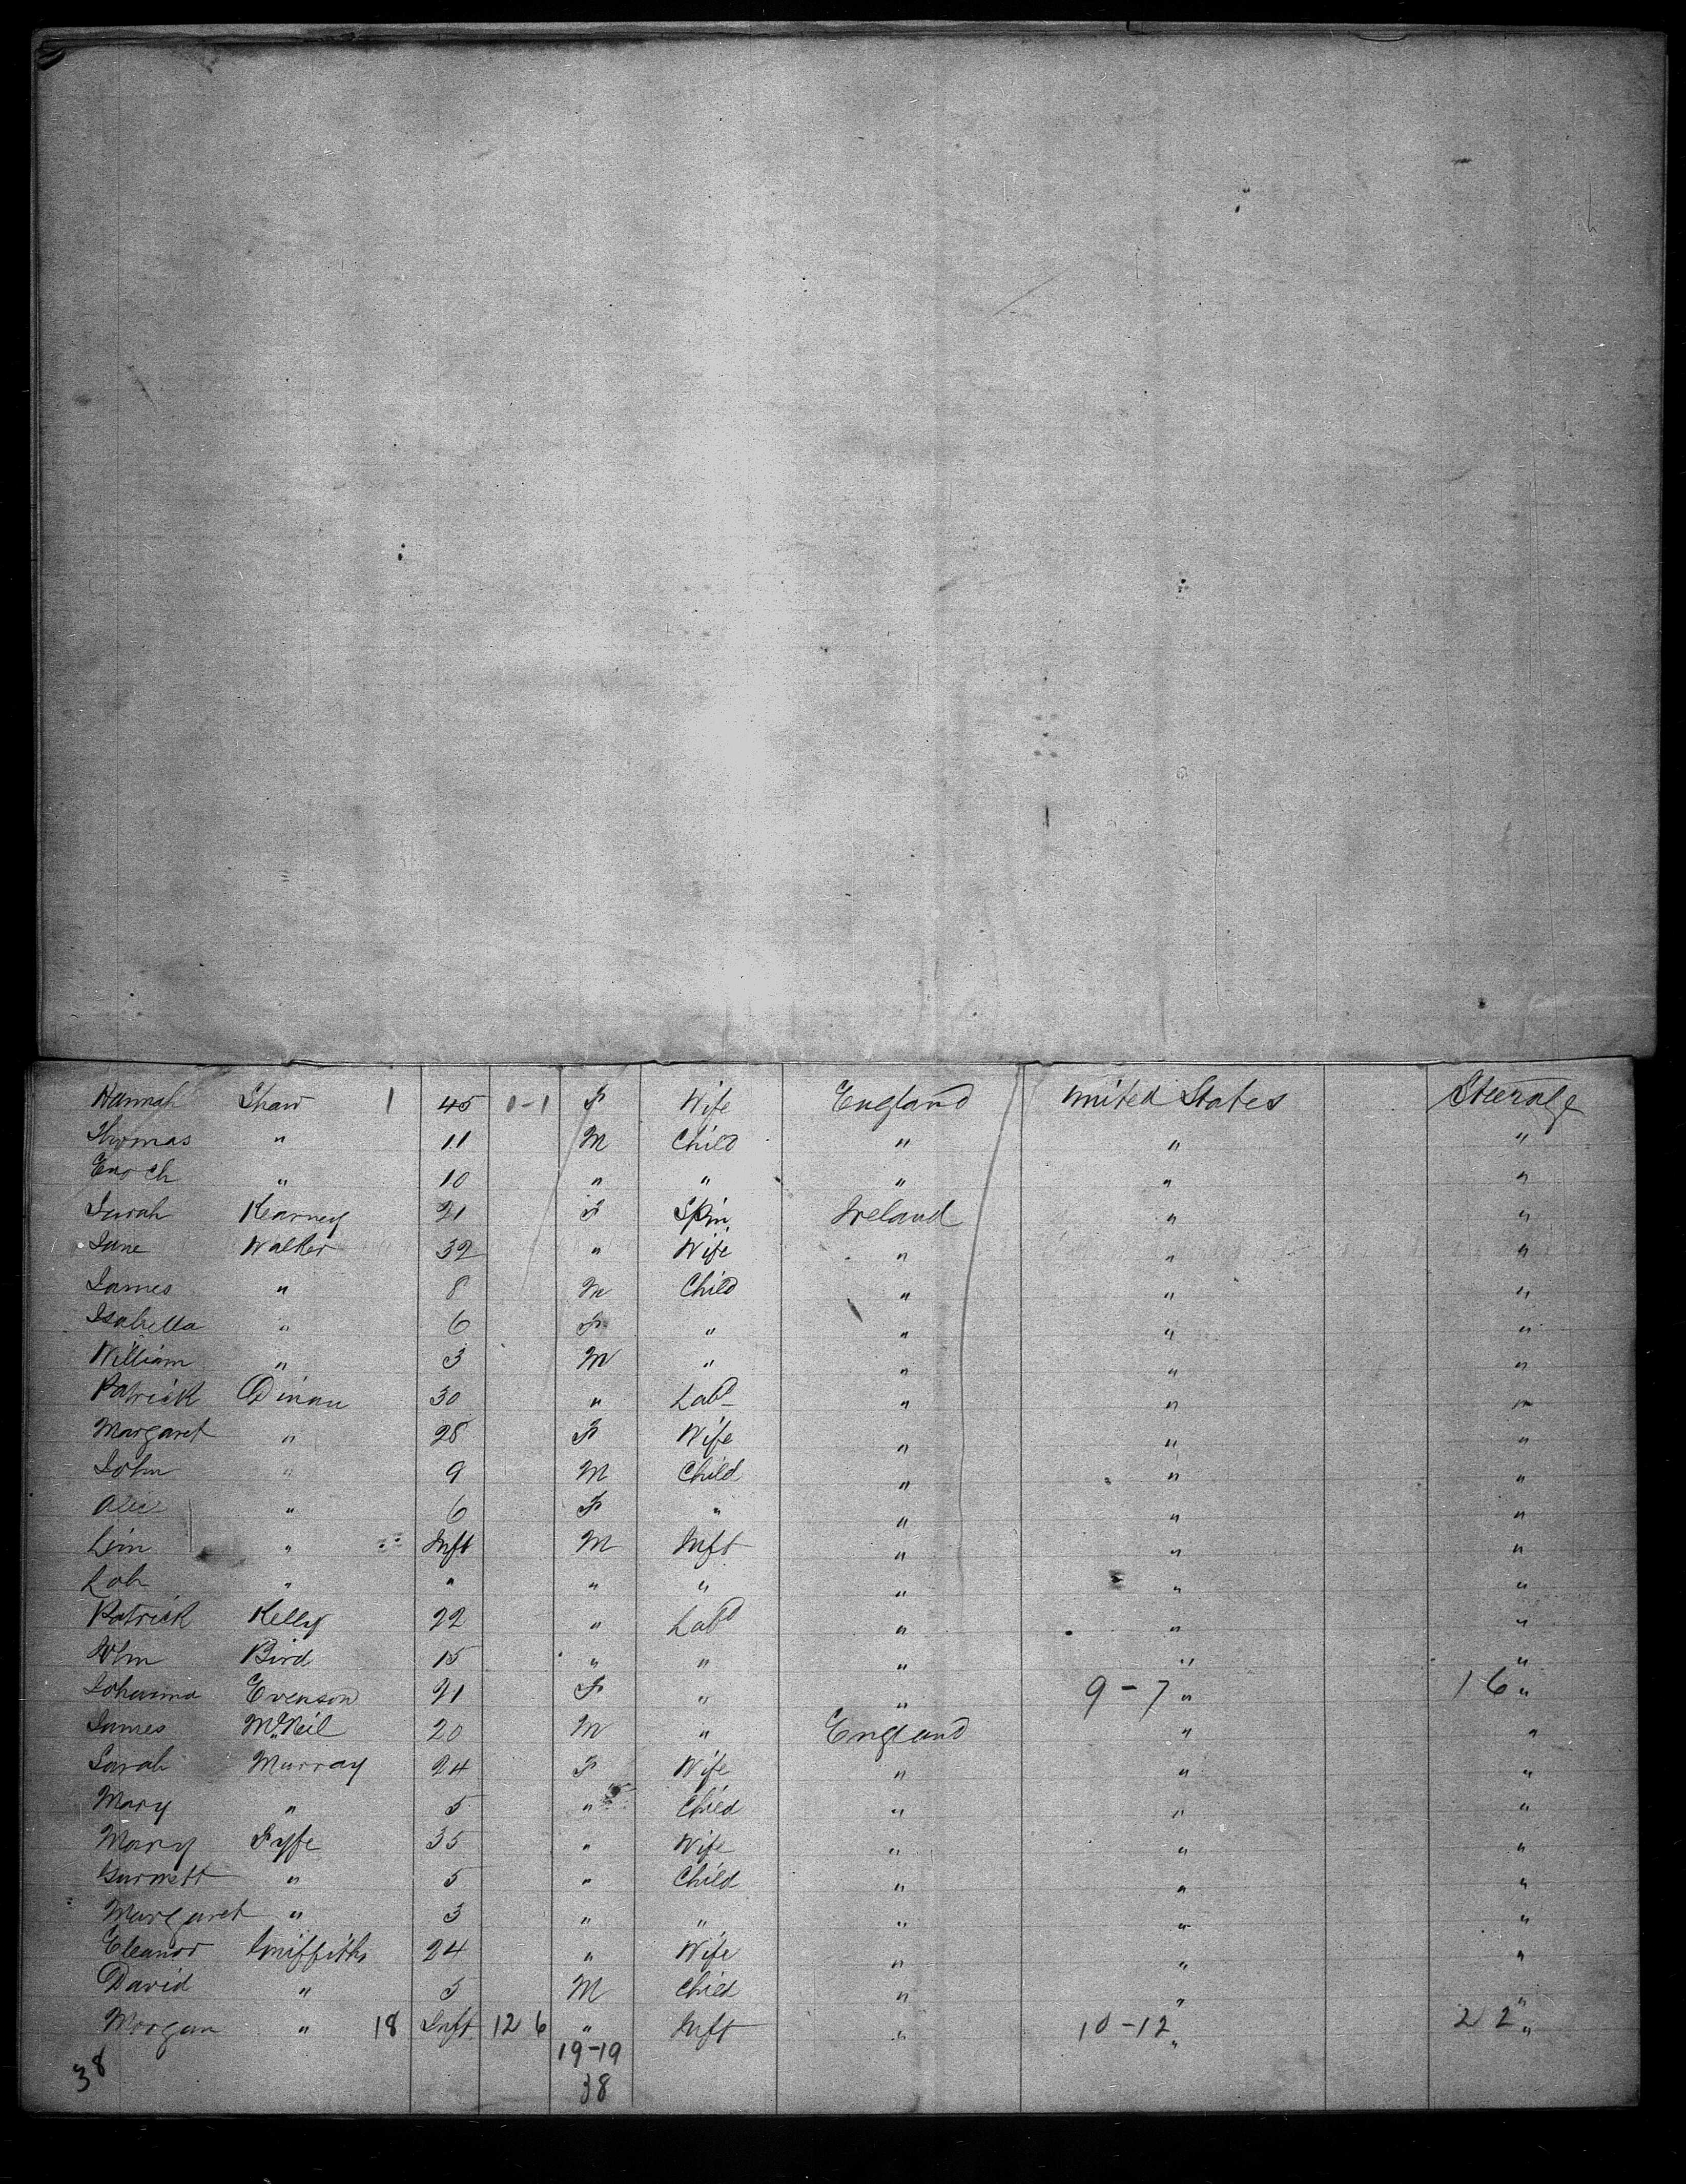 Hannah Shaw 1 45 0-1 F Wife England United States Steerage
Thomas " 11 M Child " " "
Enoch " 10 " " " " "
Sarah Kearney 21 F Spin. Ireland " "
Jane Walker 32 " Wife " " "
James " 8 M Child " " "
Isabella " 6 F " " " "
William " 3 M " " " "
Patrick Dinan 30 " Labr " " "
Margaret " 28 F Wife " " "
John " 9 M Child " " "
Alice " 6 F " " " "
" Inft M Inft " " "
" " " " " " "
Patrick Kelly 22 " Labr " " "
John Bird 15 " " " " "
Johanna Evenson 21 F " " 9-7 " 16 "
James McNeil 20 M " England " "
Sarah Murray 24 F Wife " " "
Mary " 5 " Child " " "
Mary Fyfe 35 " Wife " " "
" 5 " Child " " "
Margaret " 3 " " " " "
Eleanor Griffiths 24 " Wife " " "
David " 3 M Child " " "
Morgan " 18 Inft 12 6 " Inft " 10-12 " 22 "
19-19
38 38